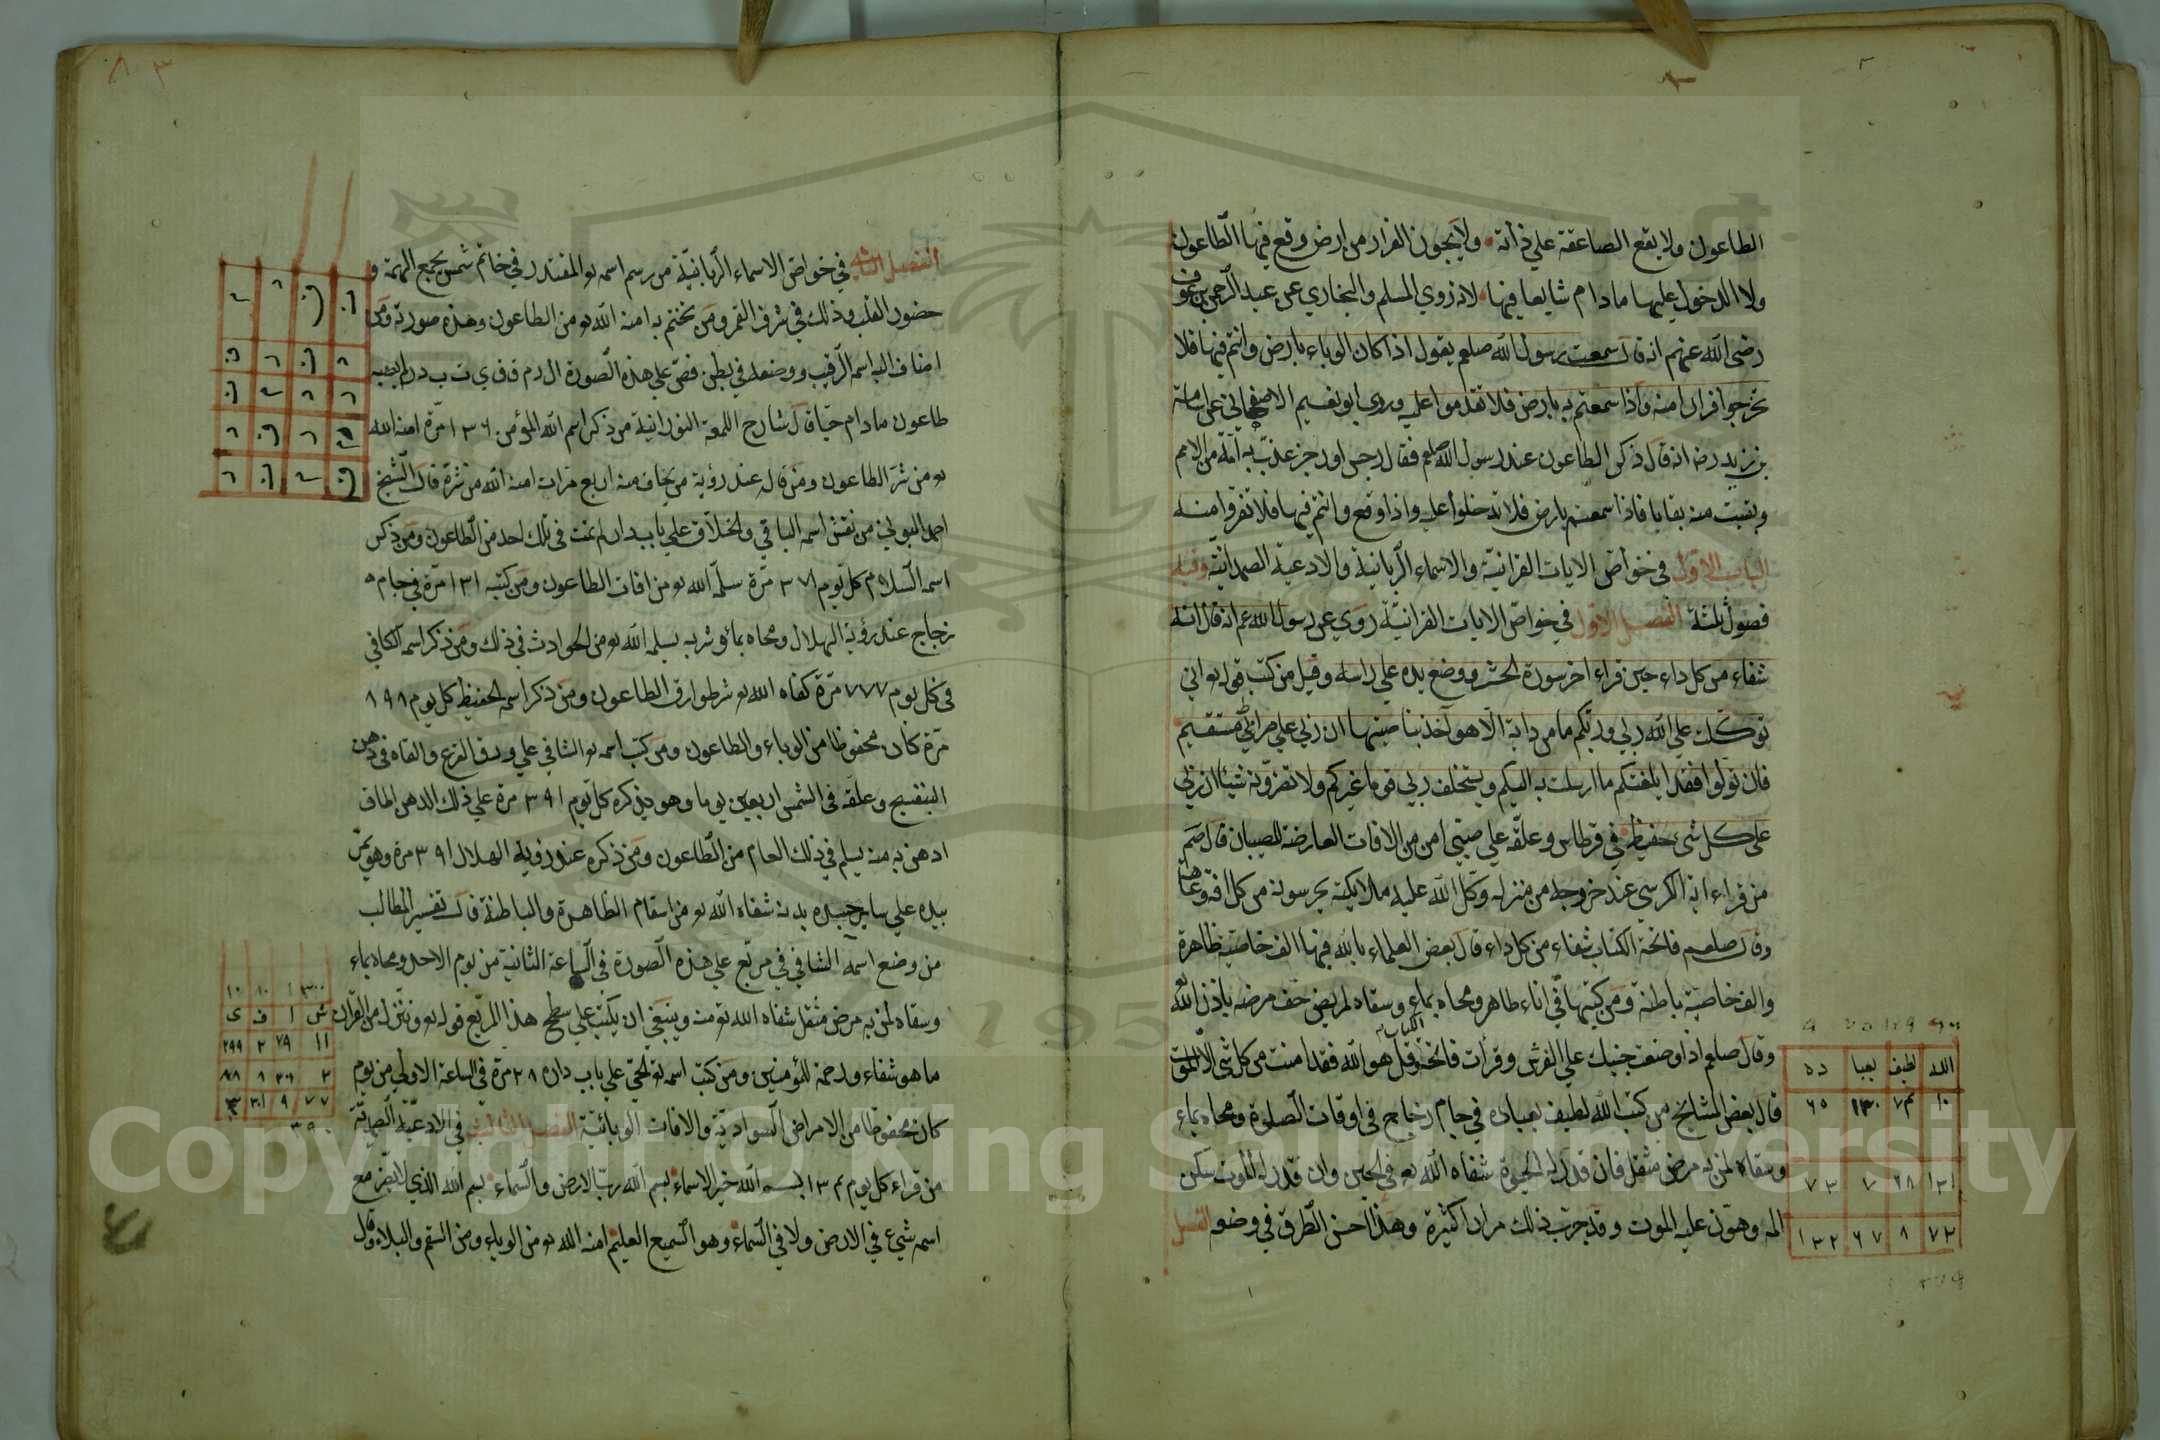 الطاعون ولا يقع الصاعقة علي ذاته ولا يجوز الفرار من ارض وقع فيها الطاعون
ولا الدخول عليها ما دام شايعا فيها لانه روي المسلم والبخاري عن عبد الرحمن بن عوف
رضي الله عنهم انه قال سمعت رسول الله صلعم يقول اذا كان الوباء بارض وانتم فيها فلا
تخرجوا فرارا منه واذا سمعتم به بارض فلا تقدموا عليه وروي ابو نعيم الاصفهاني عن اسامة
بن زيد رضه انه قال ذكر الطاعون عند رسول الله صلعم فقال رجس او رجز عذب به امة من الامم
وبقيت منه بقايا فاذا سمعتم بارض فلا تدخلوا عليه واذا وقع وانتم فيها فلا تفروا منه
الباب الاول في خواص الايات القرانية والاسماء الربانية والادعية الصمدانية وفيه
فصول ثلثة الفصل الاول في خواص الايات القرانية روي عن رسول الله عم انه قال انه
شفاء من كل داء حين قراء اخر سورة الحشر ووضع يده علي راسه وقيل من كتب قوله تع اني
توكلت علي الله ربي وربكم ما من دابة الا هو آخذ بناصيتها ان ربي علي صراط مستقيم
فان تولوا فقد ابلغتكم ما ارسلت به اليكم ويستخلف ربي قوما غيركم ولا تضرونه شيئا ان ربي
علي كل شئ حفيظ في قرطاس وعلقه علي صبي امن من الافات العارضة للصبيان قال صم
من قراء اية الكرسي عند خروجه من منزله وكل الله عليه ملايكة يحرسونه من كل افة وعاهة
وقال صلعم فاتحة الكتاب شفاء من كل داء قال بعض العلماء بالله فيها الف خاصية ظاهرة
والف خاصية باطنة ومن كتبها في اناء طاهر ومحاه بماء وسقاه لمريض خف مرضه باذن الله تع
وقال صلعم اذا وضعت جنبك علي الفرش وقرات فاتحة الكتاب وقل هو الله فقد امنت من كل شئ الا الموت
قال بعض المشايخ من كتب الله لطيف بعباده في جام زجاج في اوقات الصلوة ومحاه بماء
وسقاه لمن به مرض مثقل فان قدر له الحيوة شفاه الله تع في الحين وان قدر له الموت سكن
المه وهون عليه الموت وقد جرب ذلك مرارا كثيرة وهذا احسن الطرق في وضعه الفصل
الله لطيف بعبا ده
١٣١ ٦٨ ٧ ٧٣
٧٢ ٨ ٦٧ ١٣٢
الفصل الثاني في خواص الاسماء الربانية من رسم اسمه تع المقتدر في خاتم شمس بجمع الهمة و
حضور القلب وذلك في شرف القمر ومن تختم به امنه الله تع من الطاعون وهذه صورته ومن
اضاف اليه اسمه الرقيب ووضعه في بطن فص علي هذه الصورة ال ر م ق ق ي ت ب د ر لم يصبه
طاعون ما دام حيا قال شارح اللمعة النورانية من ذكر اسم الله المؤمن ١٣٦ مرة امنه الله
تع من شر الطاعون ومن قاله عند رؤية من يخاف منه اربع مرات امنه الله من شره قال الشيخ
احمد البوني من نقش اسمه الباقي والخلاق علي باب دار لم يمت في تلك احد من الطاعون ومن ذكر
اسمه السلام كل يوم ٣٧٨ مرة سلمه الله تع من افات الطاعون ومن كتبه ١٣١ مرة في جام
زجاج عند رؤية الهلال ومحاه بماء وشربه يسلمه الله تع من الحوادث في ذلك ومن ذكر اسمه الكافي
في كل يوم ٧٧٧ مرة كفاه الله تع شر طوارق الطاعون ومن ذكر اسمه الحفيظ كل يوم ٨٩٨
مرة كان محفوظا من الوباء والطاعون ومن كتب اسمه تع الشافي علي ورق القرع والقاه في دهن
البنفسج وعلقه في الشمس اربعين يوما وهو يذكره كل يوم ٣٩١ مرة علي ذلك الدهن
ادهن به منه يسلم في ذلك العام من الطاعون ومن ذكره عند رؤية الهلال ٣٩١ مرة وهو يمر
بيده علي ساير جسده بدنه شفاه الله تع من اسقام الظاهرة والباطنة قال تفسير المطالب
من وضع اسمه الشافي في مربع علي هذه الصورة في الساعة الثانية من يوم الاحد ومحاه بماء
وسقاه لمن به مرض مثقل شفاه الله تع منه وينبغي ان يكتب علي سطح هذا المربع قوله تع وننزل من القران
ما هو شفاء ورحمة للمؤمنين ومن كتب اسمه تع الحي علي باب داره ٢٨ مرة في الساعة الاولي من يوم
كان محفوظا من الامراض السوادية والافات الوبائية الفصل الثالث في الادعية الصمدية
من قراء كل يوم بسم الله خير الاسماء بسم الله رب الارض والسماء بسم الله الذي لا يضر مع
اسمه شئ في الارض ولا في السماء وهو السميع العليم امنه الله تع من الوباء ومن السقم والبلاء وقال
٣٠٠ ١ ٨٠ ١٠
ش ا ف ى
١١ ٧٩ ٢ ٢٩٩
٧٧ ٩ ٣٠١
Copyright © King Saud University
195